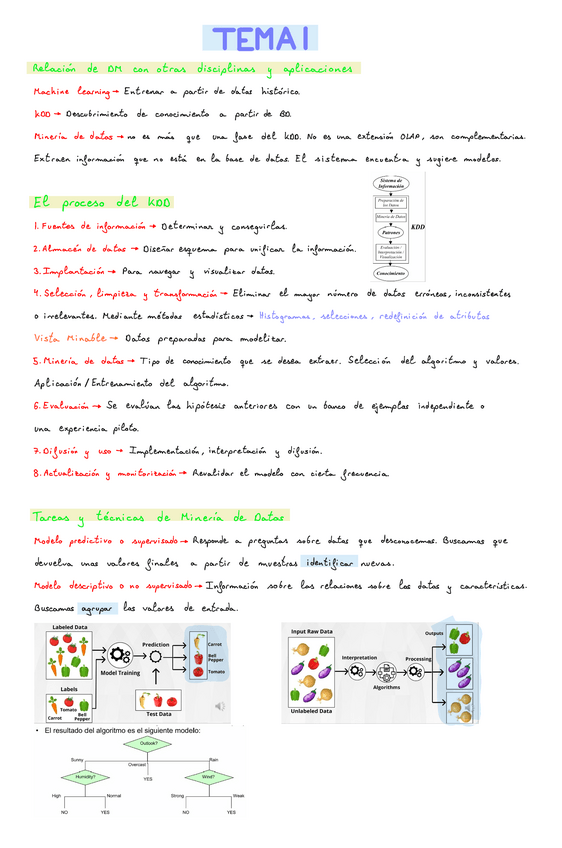 TEMA 1
Relación de DM con otras disciplinas y aplicaciones
Machine learning → Entrenar a partir de datos histórico.
KDD → Descubrimiento de conocimiento a partir de BD.
Minería de datos → no es más que una fase del KDD. No es una extensión OLAP, son complementarias.
Extraen información que no está en la base de datos. El sistema encuentra y sugiere modelos.
El proceso del KDD
1. Fuentes de información → Determinar y conseguirlas.
2. Almacén de datos → Diseñar esquema para unificar la información.
3. Implantación → Para navegar y visualizar datos.
4. Selección, limpieza y transformación → Eliminar el mayor número de datos erróneos, inconsistentes
o irrelevantes. Mediante métodos estadísticos → Histogramas, selecciones, redefinición de atributos
Vista Minable → Datos preparados para modelizar.
5. Minería de datos → Tipo de conocimiento que se desea extraer. Selección del algoritmo y valores.
Aplicación / Entrenamiento del algoritmo.
6. Evaluación → Se evalúan las hipótesis anteriores con un banco de ejemplos independiente o
una experiencia piloto.
7. Difusión y uso → Implementación, interpretación y difusión.
8. Actualización y monitorización → Revalidar el modelo con cierta frecuencia.
Sistema de
Información
Preparación de
los Datos
Minería de Datos
Patrones
KDD
Evaluación /
Interpretación /
Visualización
Conocimiento
Tareas y técnicas de Minería de Datos
Modelo predictivo o supervisado → Responde a preguntas sobre datos que desconocemos. Buscamos que
devuelva unos valores finales a partir de muestras identificar nuevas.
Modelo descriptivo o no supervisado → Información sobre las relaciones sobre los datos y características.
Buscamos agrupar los valores de entrada.
Labeled Data
Prediction
Carrot
Bell
Pepper
Tomato
Model Training
Labels
Tomato
Carrot
Bell
Pepper
Test Data
Input Raw Data
Outputs
Interpretation
Processing
Algorithms
Unlabeled Data
• El resultado del algoritmo es el siguiente modelo:
Outlook?
Sunny
Overcast
Rain
Humidity?
YES
Wind?
High
Normal
Strong
Weak
NO
YES
NO
YES